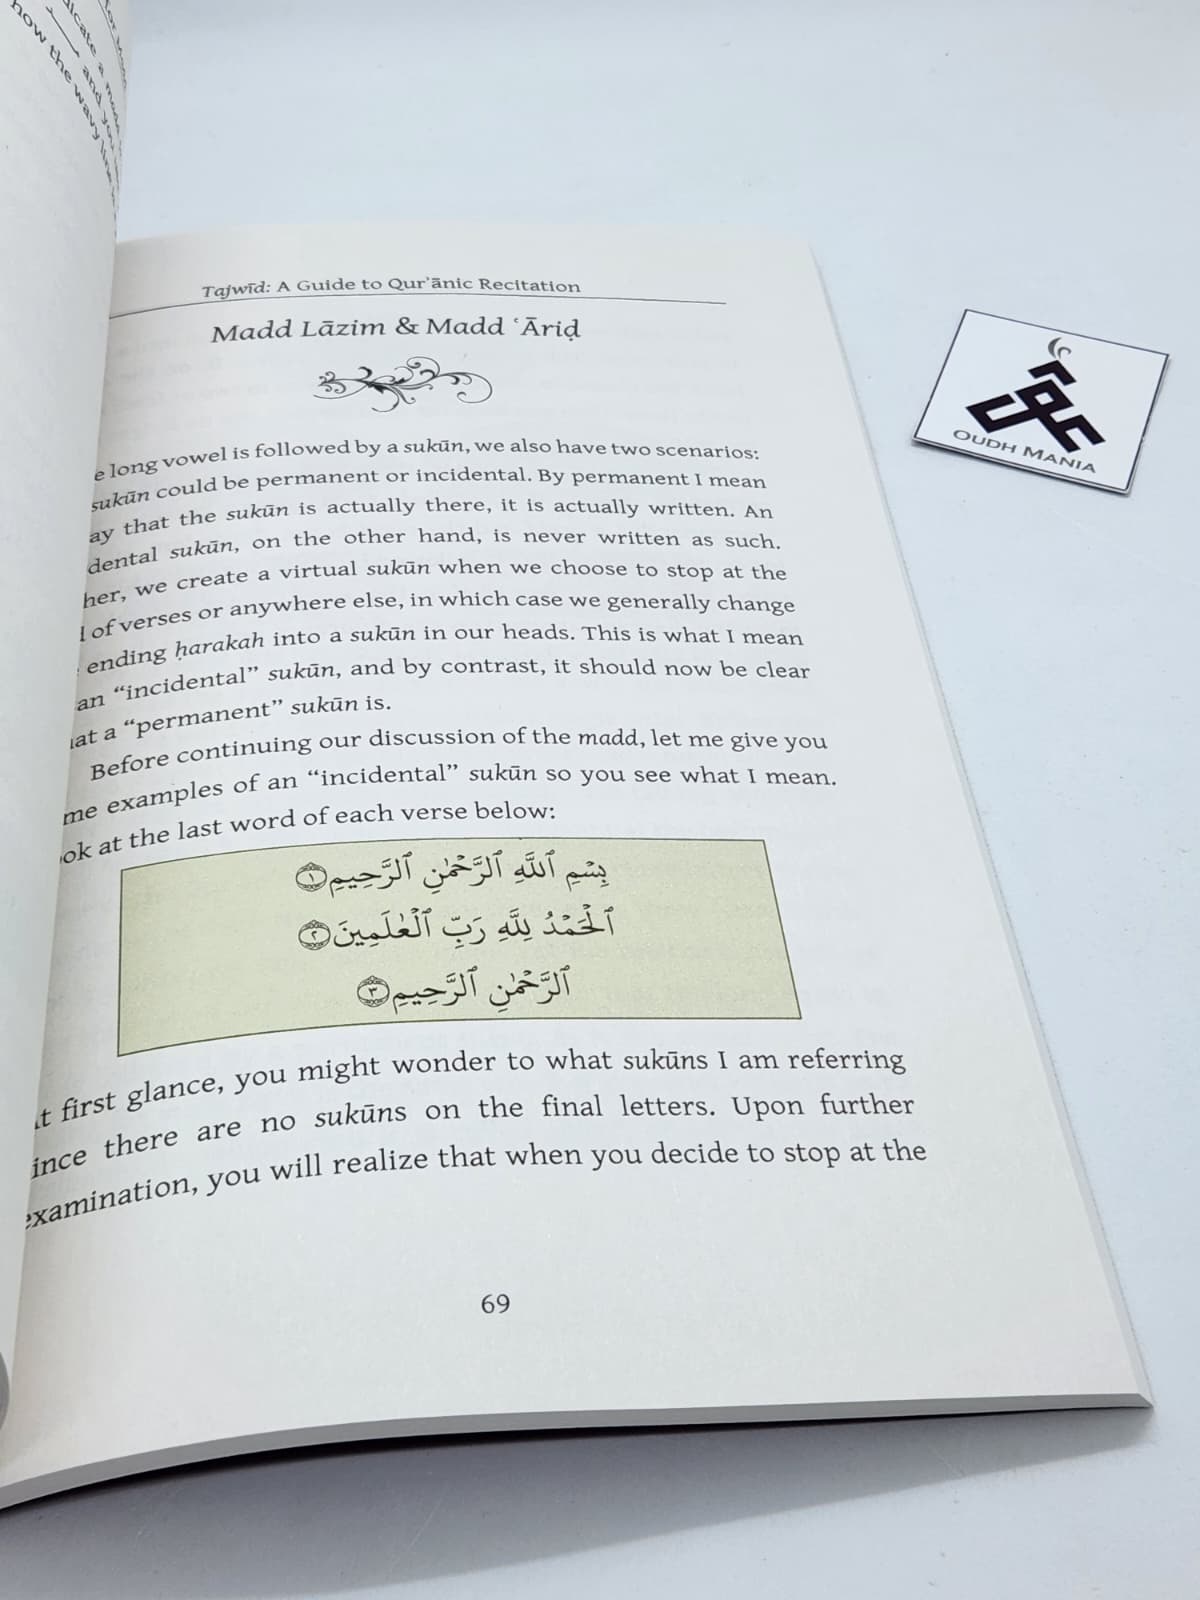 icate a
and you
how the wavy line
Tajwīd: A Guide to Qur’ānic Recitation
Madd Lāzim & Madd ʿĀriḍ
e long vowel is followed by a sukūn, we also have two scenarios:
sukūn could be permanent or incidental. By permanent I mean
ay that the sukūn is actually there, it is actually written. An
dental sukūn, on the other hand, is never written as such.
her, we create a virtual sukūn when we choose to stop at the
of verses or anywhere else, in which case we generally change
ending ḥarakah into a sukūn in our heads. This is what I mean
an “incidental” sukūn, and by contrast, it should now be clear
at a “permanent” sukūn is.
Before continuing our discussion of the madd, let me give you
me examples of an “incidental” sukūn so you see what I mean.
ok at the last word of each verse below:
بِسْمِ ٱللَّهِ ٱلرَّحْمَٰنِ ٱلرَّحِيمِ ١
ٱلْحَمْدُ لِلَّهِ رَبِّ ٱلْعَٰلَمِينَ ٢
ٱلرَّحْمَٰنِ ٱلرَّحِيمِ ٣
t first glance, you might wonder to what sukūns I am referring
ince there are no sukūns on the final letters. Upon further
examination, you will realize that when you decide to stop at the
69
OUDH MANIA